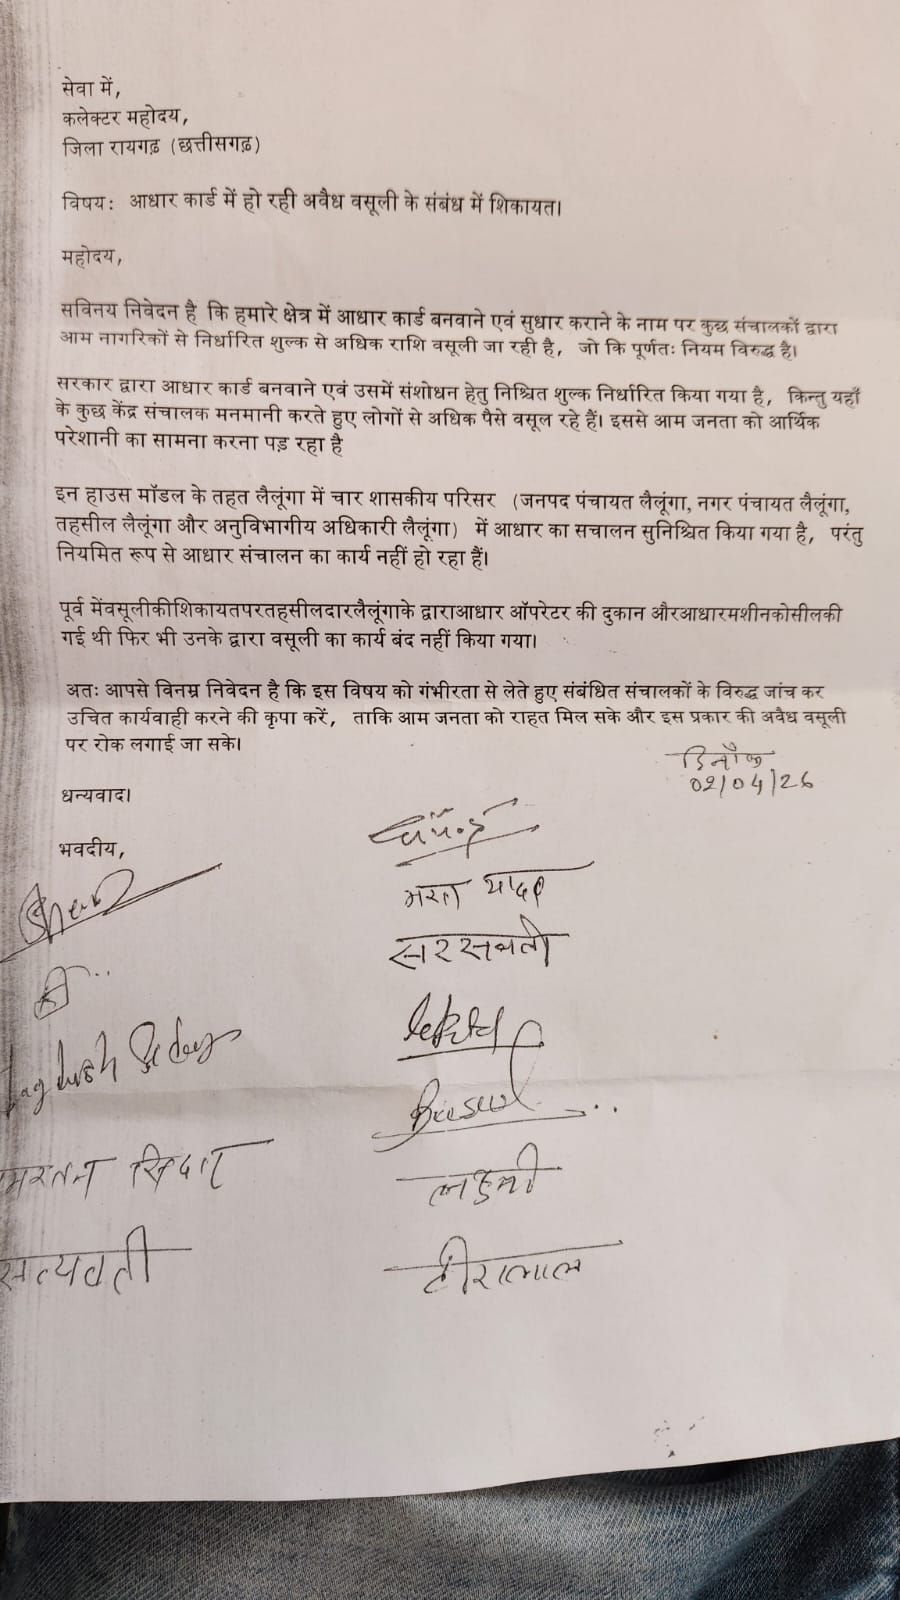 सेवा में,
कलेक्टर महोदय,
जिला रायगढ़ (छत्तीसगढ़)
विषय: आधार कार्ड में हो रही अवैध वसूली के संबंध में शिकायत।
महोदय,
सविनय निवेदन है कि हमारे क्षेत्र में आधार कार्ड बनवाने एवं सुधार कराने के नाम पर कुछ संचालकों द्वारा
आम नागरिकों से निर्धारित शुल्क से अधिक राशि वसूली जा रही है, जो कि पूर्णतः नियम विरुद्ध है।
सरकार द्वारा आधार कार्ड बनवाने एवं उसमें संशोधन हेतु निश्चित शुल्क निर्धारित किया गया है, किन्तु यहाँ
के कुछ केंद्र संचालक मनमानी करते हुए लोगों से अधिक पैसे वसूल रहे हैं। इससे आम जनता को आर्थिक
परेशानी का सामना करना पड़ रहा है
इन हाउस मॉडल के तहत लैलूंगा में चार शासकीय परिसर (जनपद पंचायत लैलूंगा, नगर पंचायत लैलूंगा,
तहसील लैलूंगा और अनुविभागीय अधिकारी लैलूंगा) में आधार का सचालन सुनिश्चित किया गया है, परंतु
नियमित रूप से आधार संचालन का कार्य नहीं हो रहा हैं।
पूर्व मेंवसूलीकीशिकायतपरतहसीलदारलैलूंगाके द्वाराआधार ऑपरेटर की दुकान औरआधारमशीनकोसीलकी
गई थी फिर भी उनके द्वारा वसूली का कार्य बंद नहीं किया गया।
अतः आपसे विनम्र निवेदन है कि इस विषय को गंभीरता से लेते हुए संबंधित संचालकों के विरुद्ध जांच कर
उचित कार्यवाही करने की कृपा करें, ताकि आम जनता को राहत मिल सके और इस प्रकार की अवैध वसूली
पर रोक लगाई जा सके।
दिनाँक
02/04/26
धन्यवाद।
भवदीय,
यादव
सरस्वती
सिदार
लक्ष्मी
सत्यवती
हीरालाल